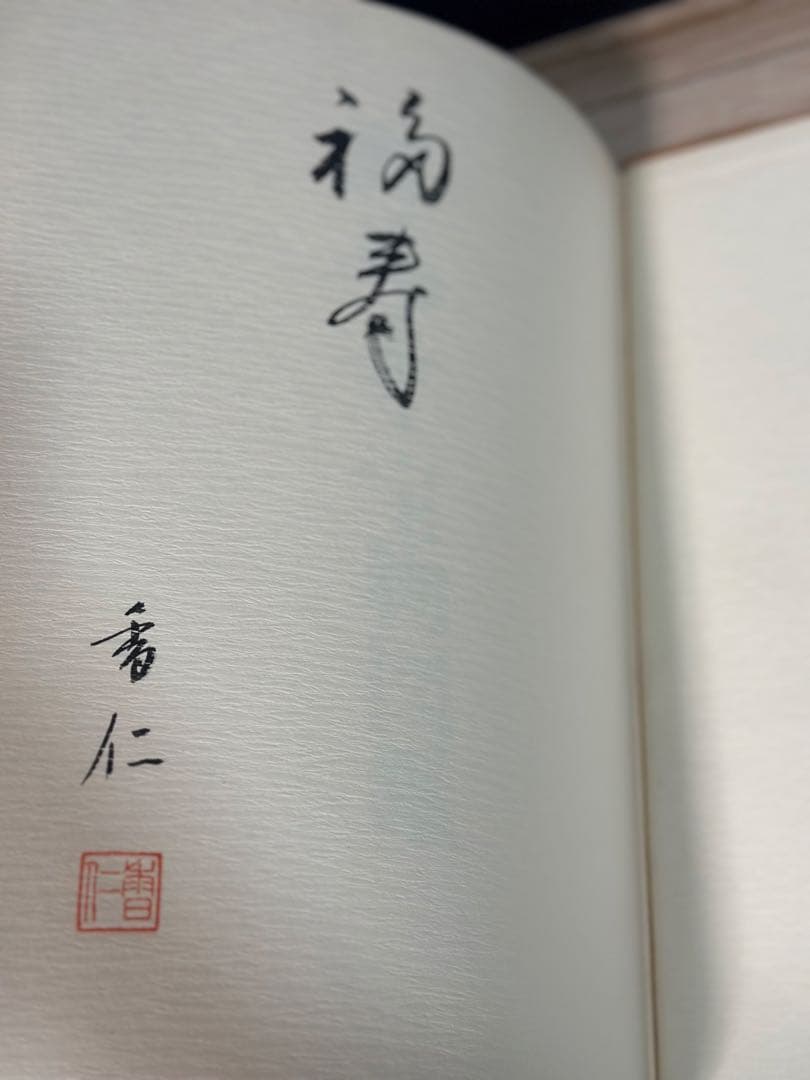 福寿
香仁
香仁